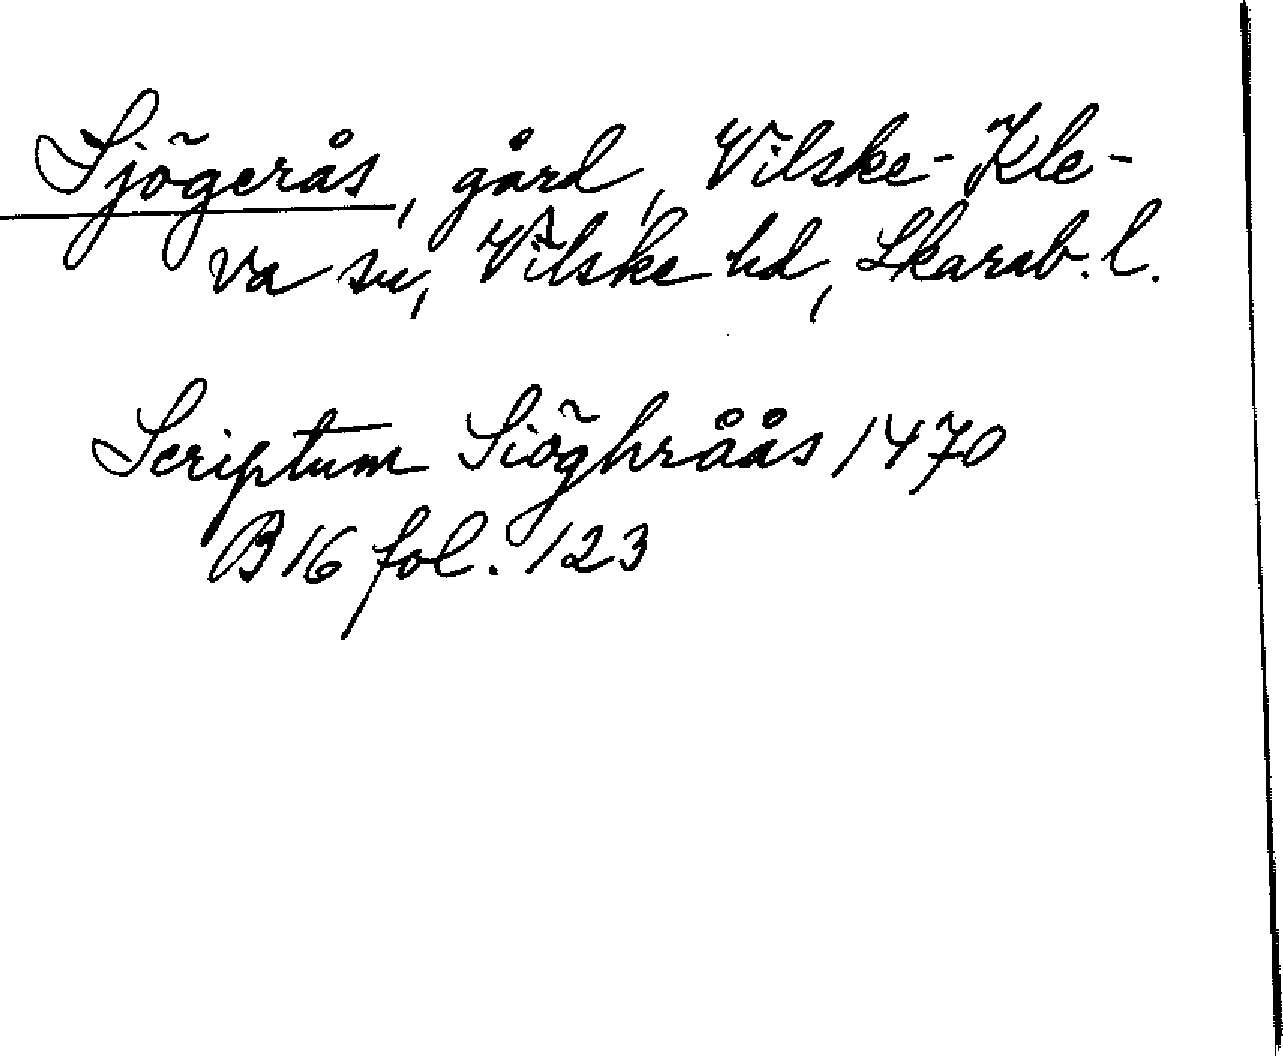 Sjögerås, gård, Vilske-Kle-
va sn, Vilske hd, Skarab. l.
Scriptum Siöghråås 1470
B 16 fol. 123